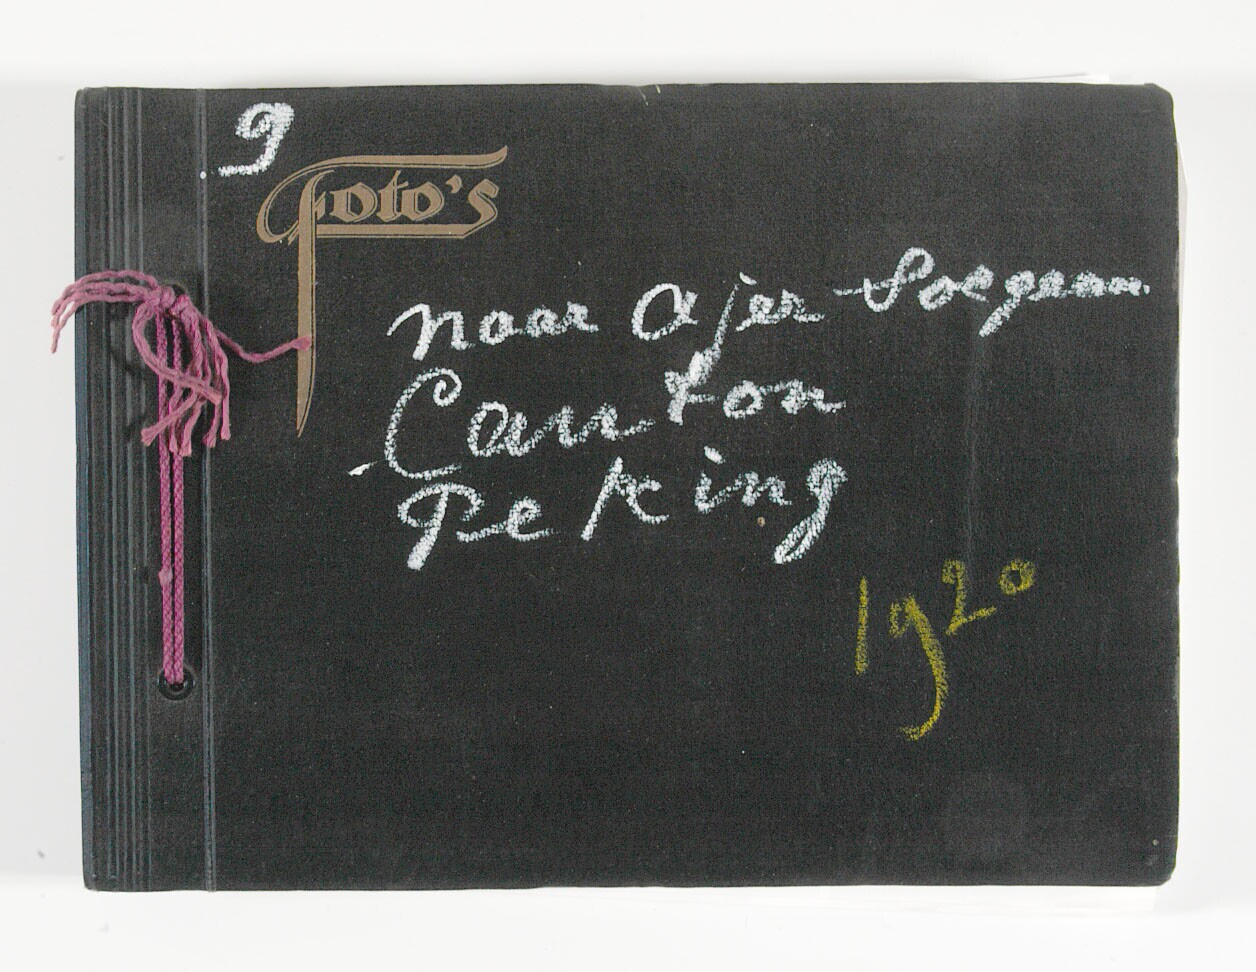 9
Foto's
naar Ajer-Soegean
Canton
Peking
1920